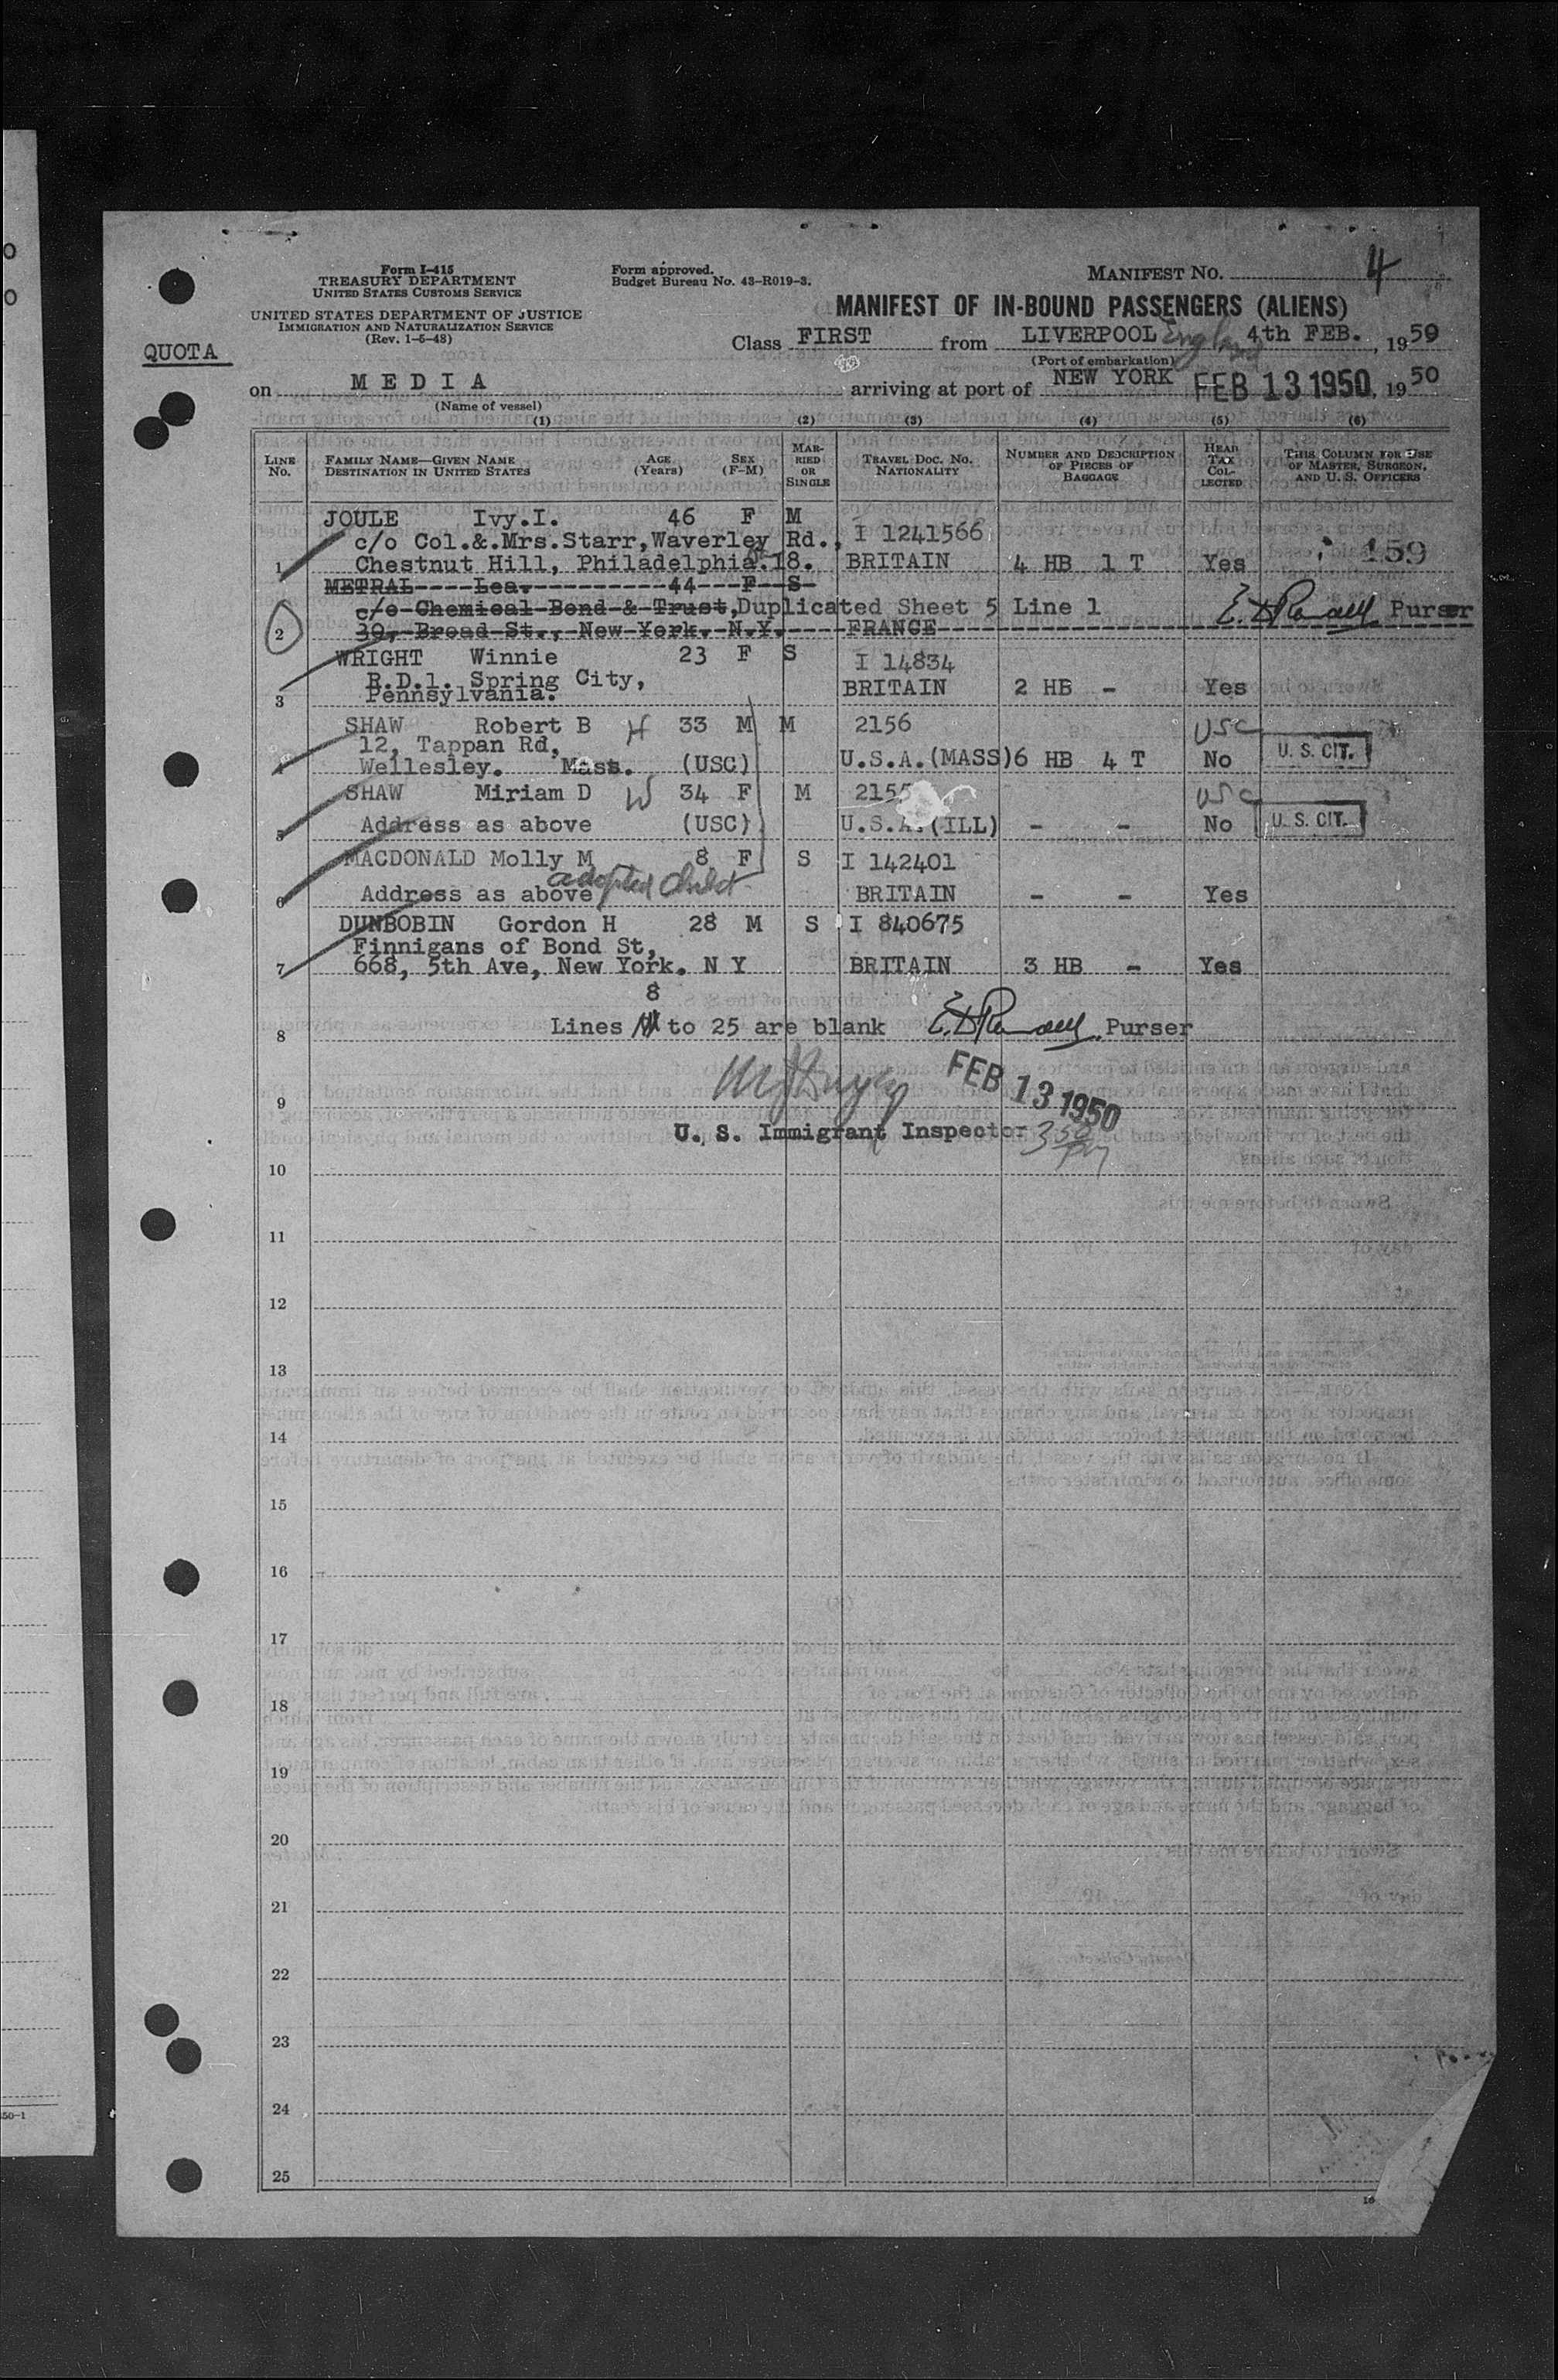 Form I-415
TREASURY DEPARTMENT
UNITED STATES CUSTOMS SERVICE
UNITED STATES DEPARTMENT OF JUSTICE
IMMIGRATION AND NATURALIZATION SERVICE
(Rev. 1-5-48)
Form approved.
Budget Bureau No. 43-R019-3.
MANIFEST NO. 4
MANIFEST OF IN-BOUND PASSENGERS (ALIENS)
QUOTA
Class FIRST from LIVERPOOL England 4th FEB. , 1959
(Port of embarkation)
on MEDIA arriving at port of NEW YORK FEB 13 1950, 1950
(Name of vessel)
(1) (2) (3) (4) (5) (6)
LINE No. FAMILY NAME—GIVEN NAME DESTINATION IN UNITED STATES AGE (Years) SEX (F-M) MARRIED OR SINGLE TRAVEL DOC. NO. NATIONALITY NUMBER AND DESCRIPTION OF PIECES OF BAGGAGE HEAD TAX COLLECTED THIS COLUMN FOR USE OF MASTER, SURGEON, AND U. S. OFFICERS
JOULE Ivy.I. 46 F M
c/o Col.&.Mrs.Starr,Waverley Rd., I 1241566
1 Chestnut Hill, Philadelphia.18. BRITAIN 4 HB 1 T Yes 159
METRAL----Lea.----------44---F--S-
c/o Chemical Bond & Trust,Duplicated Sheet 5 Line 1 Purser
2 30, Broad St., New York. N.Y.----FRANCE
WRIGHT Winnie 23 F S I 14834
R.D.1. Spring City,
3 Pennsylvania. BRITAIN 2 HB - Yes
SHAW Robert B H 33 M M 2156 USC
12, Tappan Rd,
4 Wellesley. Mass. (USC) U.S.A.(MASS) 6 HB 4 T No U. S. CIT.
SHAW Miriam D W 34 F M 2155 USC
5 Address as above (USC) U.S.A.(ILL) - - No U. S. CIT.
MACDONALD Molly M 8 F S I 142401
adopted child
6 Address as above BRITAIN - - Yes
DUNBOBIN Gordon H 28 M S I 840675
Finnigans of Bond St,
7 668, 5th Ave, New York. N Y BRITAIN 3 HB - Yes
8
8 Lines to 25 are blank Purser
FEB 13 1950
9
U. S. Immigrant Inspector 350 PM
10
11
12
13
14
15
16
17
18
19
20
21
22
23
24
25